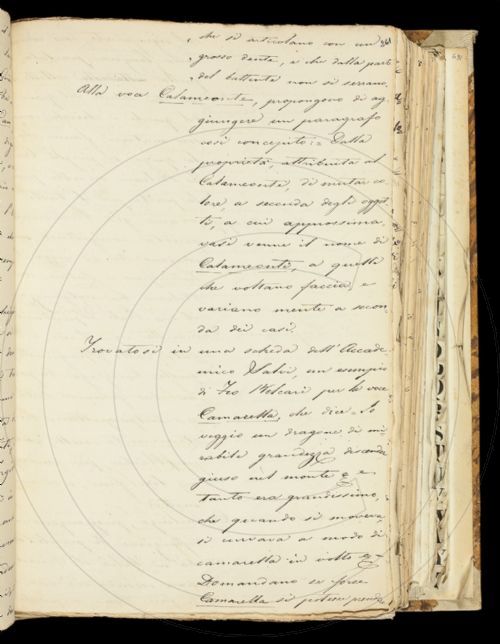 che si articolano con un 361
grosso dente, e che dalla parte
del battente non si serrano.
Alla voce Calameonte, propongono di ag
giungere un paragrafo
così concepito:= Dalla
proprietà, attribuita al
Calameonte, di mutar co
lore, a seconda degli oggetti
ti, a cui approssima
vasi venne il nome di
Calameonti, a quelli
che voltano faccia, e
variano mente a secon
da dei casi.
Trovatosi in una scheda dell'Accade
mico Salvi, un esempio
di Feo Belcari per la voce
Camaretta, che dice = Io
veggio un dragone di mi
rabile grandezza discende
giuso nel monte e
tanto era grandissimo,
che quando si moveva,
si curvava a modo di
camaretta in volto =
Domandano se forse
Camaretta si potesse prende